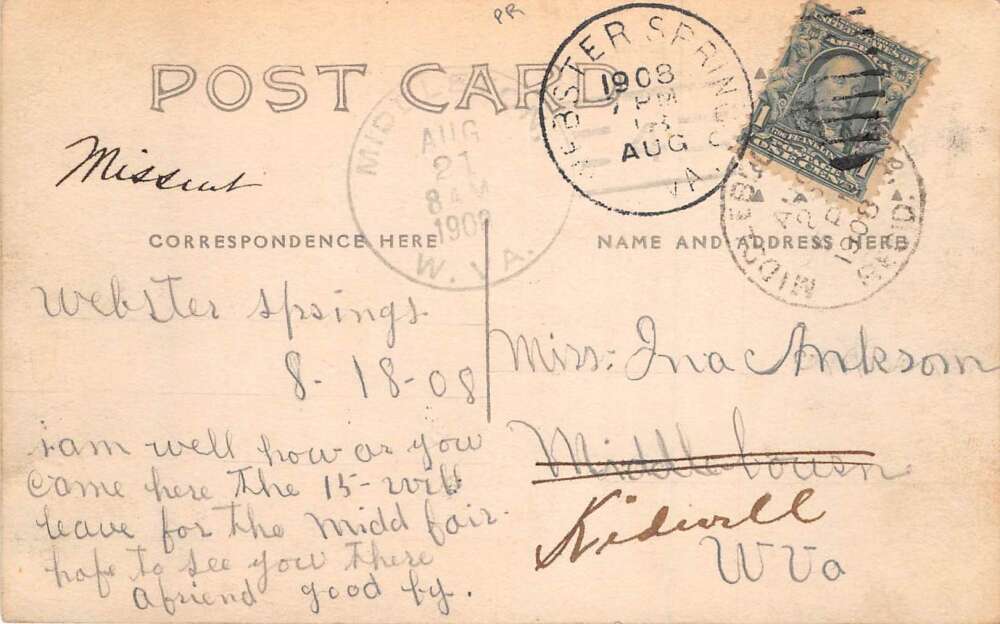 PR
POST CARD
WEBSTER SPRINGS
1908
7 PM
AUG
VA
AUG
21
8 AM
W. VA.
1908
ONE CENT
Missent
CORRESPONDENCE HERE
NAME AND ADDRESS HERE
Webster Springs
8-18-08
i am well how ar you
Came here the 15- will
leave for the midd fair.
hope to see you there
a friend good by.
Miss. Ina Ankrom
Middlebourn
Kidwell
W Va